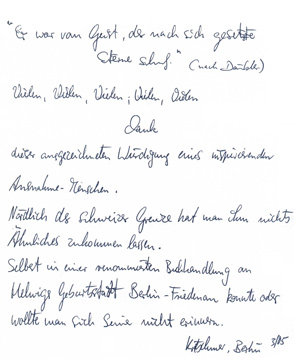 "Er war vom Geist, der nach sich gesetzte
Sterne schuf." (nach Däubler)
Vielen, Vielen, Vielen, Vielen, Vielen
Dank
dieser ausgezeichneten Würdigung eines inspirierenden
Ausnahme-Menschen.
Nördlich der Schweizer Grenze hat man ihm nichts
Ähnliches zukommen lassen.
Selbst in einer renommierten Buchhandlung an
Helwigs Geburtsstadt Berlin-Friedenau konnte oder
wollte man sich Seine nicht erinnern.
Berlin 3/85